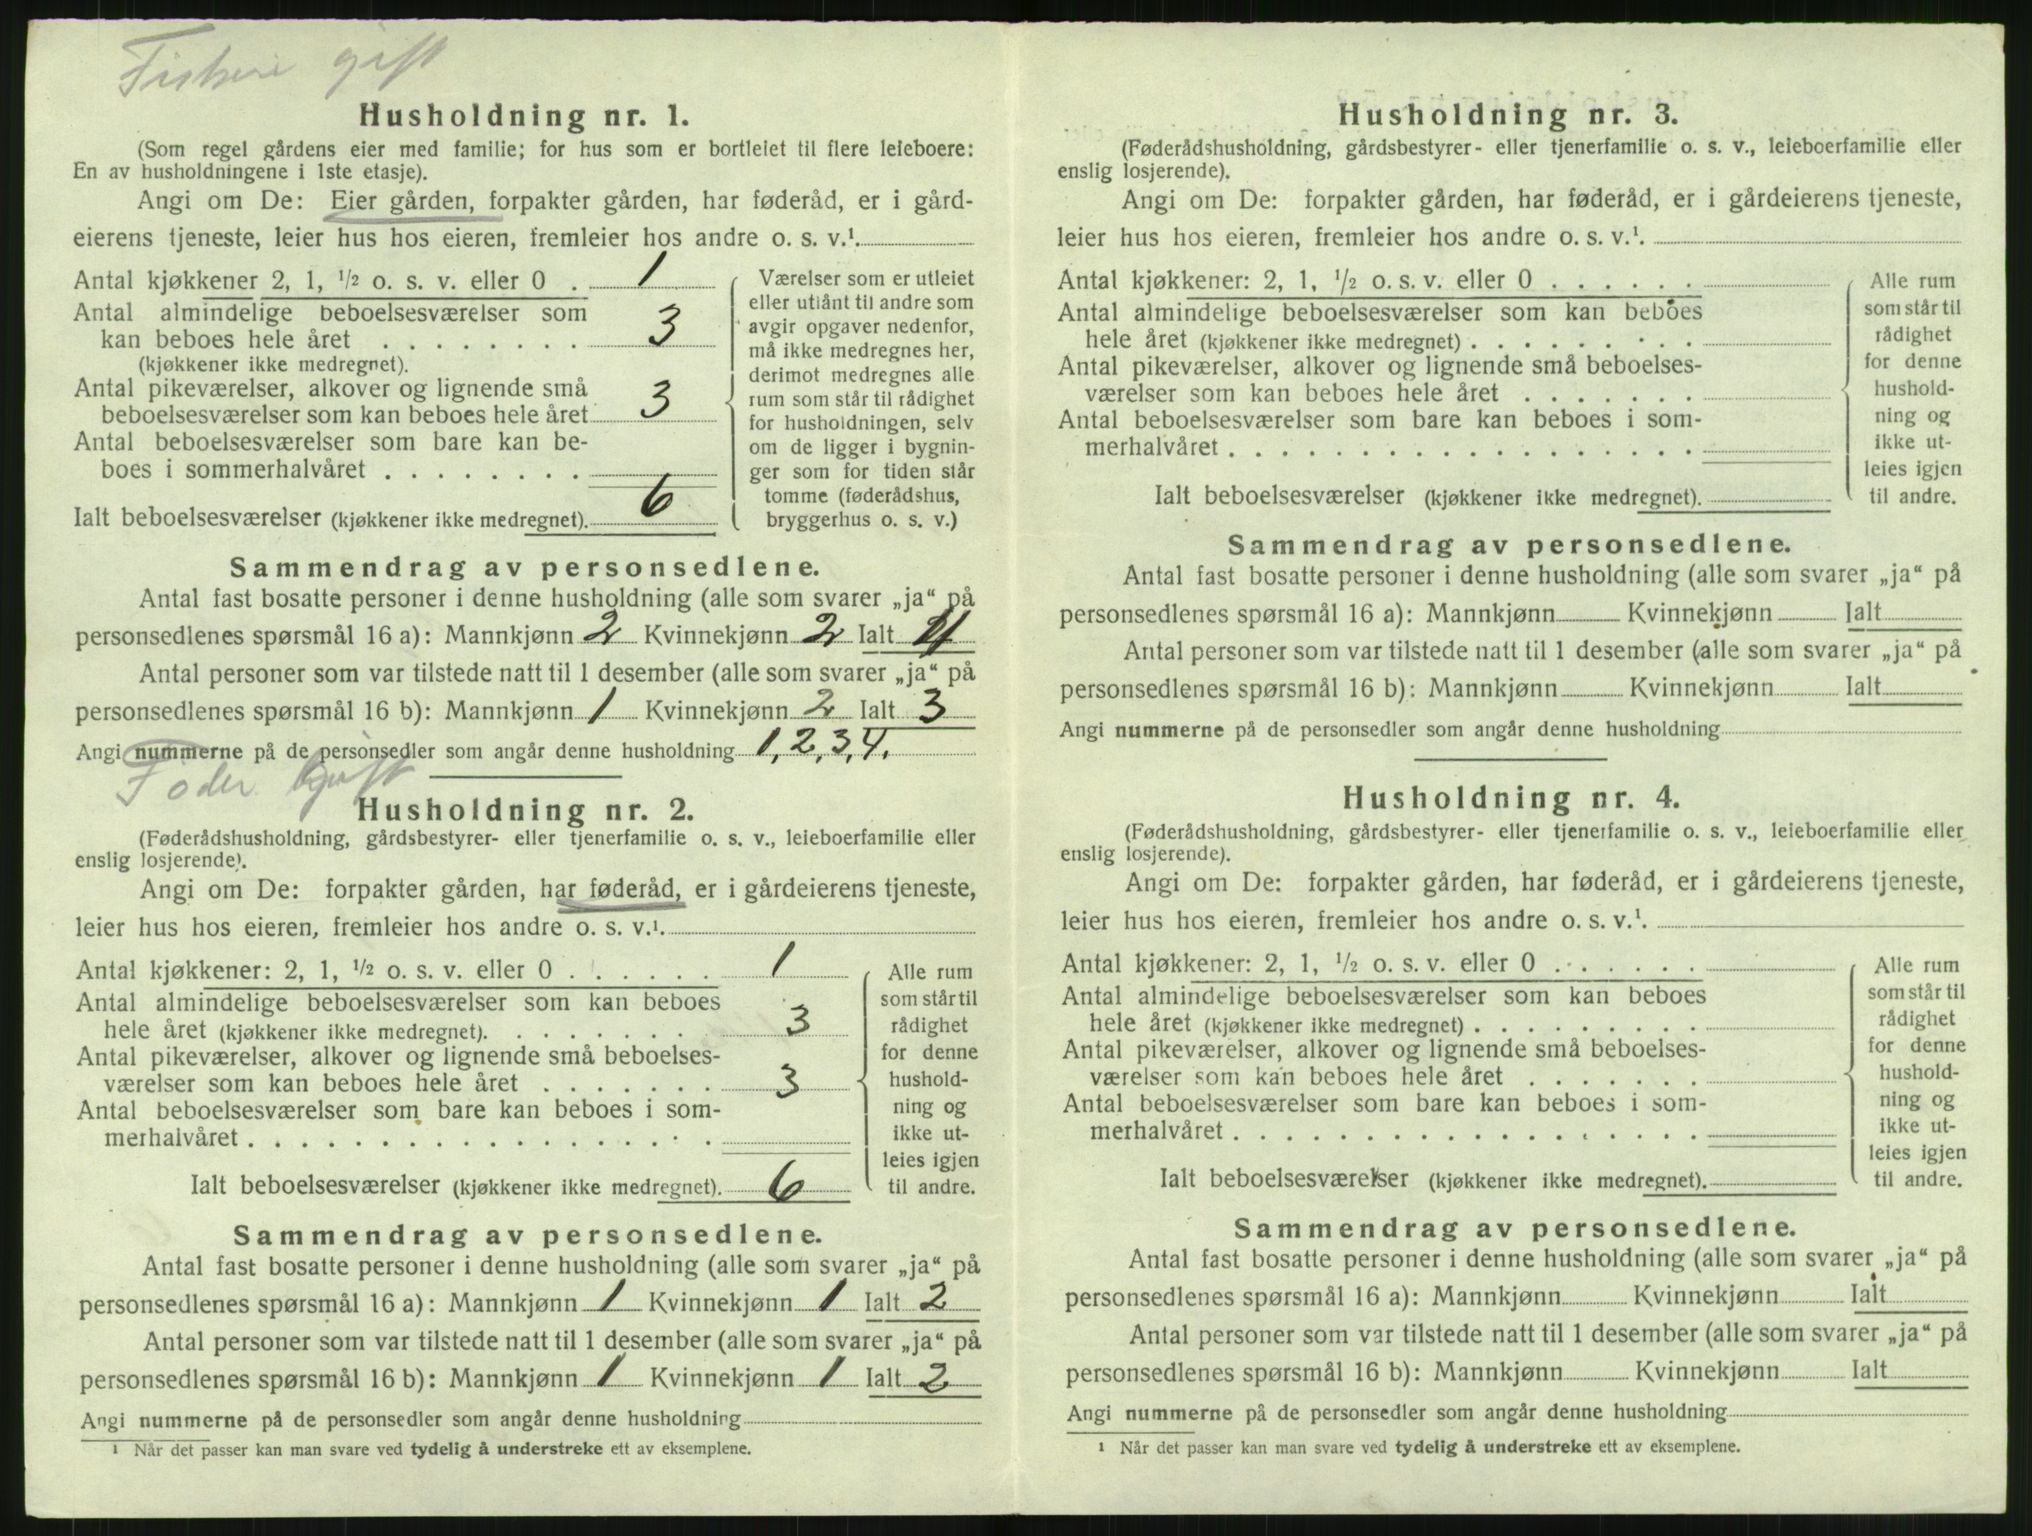 Fisker gift
Husholdning nr. 1.
(Som regel gårdens eier med familie; for hus som er bortleiet til flere leieboere:
En av husholdningene i 1ste etasje).
Angi om De: Eier gården, forpakter gården, har føderåd, er i gård-
eierens tjeneste, leier hus hos eieren, fremleier hos andre o. s. v.¹.
Antal kjøkkener 2, 1, ½ o. s. v. eller 0 . 1
Antal almindelige beboelsesværelser som
kan beboes hele året . . . . . . . . 3
(kjøkkener ikke medregnet).
Antal pikeværelser, alkover og lignende små
beboelsesværelser som kan beboes hele året 3
Antal beboelsesværelser som bare kan be-
boes i sommerhalvåret . . . . . . . .
Ialt beboelsesværelser (kjøkkener ikke medregnet). 6
Værelser som er utleiet
eller utlånt til andre som
avgir opgaver nedenfor,
må ikke medregnes her,
derimot medregnes alle
rum som står til rådighet
for husholdningen, selv
om de ligger i bygnin-
ger som for tiden står
tomme (føderådshus,
bryggerhus o. s. v.)
Sammendrag av personsedlene.
Antal fast bosatte personer i denne husholdning (alle som svarer „ja“ på
personsedlenes spørsmål 16 a): Mannkjønn 2 Kvinnekjønn 2 Ialt 4
Antal personer som var tilstede natt til 1 desember (alle som svarer „ja“ på
personsedlenes spørsmål 16 b): Mannkjønn 1 Kvinnekjønn 2 Ialt 3
Angi nummerne på de personsedler som angår denne husholdning 1, 2, 3, 4.
Føder gift
Husholdning nr. 2.
(Føderådshusholdning, gårdsbestyrer- eller tjenerfamilie o. s. v., leieboerfamilie eller
enslig losjerende).
Angi om De: forpakter gården, har føderåd, er i gårdeierens tjeneste,
leier hus hos eieren, fremleier hos andre o. s. v.¹.
Antal kjøkkener: 2, 1, ½ o. s. v. eller 0 . . . . . . 1
Antal almindelige beboelsesværelser som kan beboes
hele året (kjøkkener ikke medregnet). . . . . . . . 3
Antal pikeværelser, alkover og lignende små beboelses-
værelser som kan beboes hele året . . . . . . . 3
Antal beboelsesværelser som bare kan beboes i som-
merhalvåret . . . . . . . . . . . . . . . . .
Ialt beboelsesværelser (kjøkkener ikke medregnet). 6
Alle rum
som står til
rådighet
for denne
hushold-
ning og
ikke ut-
leies igjen
til andre.
Sammendrag av personsedlene.
Antal fast bosatte personer i denne husholdning (alle som svarer „ja“ på
personsedlenes spørsmål 16 a): Mannkjønn 1 Kvinnekjønn 1 Ialt 2
Antal personer som var tilstede natt til 1 desember (alle som svarer „ja“ på
personsedlenes spørsmål 16 b): Mannkjønn 1 Kvinnekjønn 1 Ialt 2
Angi nummerne på de personsedler som angår denne husholdning
¹ Når det passer kan man svare ved tydelig å understreke ett av eksemplene.
Husholdning nr. 3.
(Føderådshusholdning, gårdsbestyrer- eller tjenerfamilie o. s. v., leieboerfamilie eller
enslig losjerende).
Angi om De: forpakter gården, har føderåd, er i gårdeierens tjeneste,
leier hus hos eieren, fremleier hos andre o. s. v.¹.
Antal kjøkkener: 2, 1, ½ o. s. v. eller 0 . . . . . .
Antal almindelige beboelsesværelser som kan beboes
hele året (kjøkkener ikke medregnet) . . . . . . . . .
Antal pikeværelser, alkover og lignende små beboelses-
værelser som kan beboes hele året . . . . . . .
Antal beboelsesværelser som bare kan beboes i som-
merhalvåret . . . . . . . . . . . . . . . . .
Ialt beboelsesværelser (kjøkkener ikke medregnet).
Alle rum
som står til
rådighet
for denne
hushold-
ning og
ikke ut-
leies igjen
til andre.
Sammendrag av personsedlene.
Antal fast bosatte personer i denne husholdning (alle som svarer „ja“ på
personsedlenes spørsmål 16 a): Mannkjønn Kvinnekjønn Ialt
Antal personer som var tilstede natt til 1 desember (alle som svarer „ja“ på
personsedlenes spørsmål 16 b): Mannkjønn Kvinnekjønn Ialt
Angi nummerne på de personsedler som angår denne husholdning
Husholdning nr. 4.
(Føderådshusholdning, gårdsbestyrer- eller tjenerfamilie o. s. v., leieboerfamilie eller
enslig losjerende).
Angi om De: forpakter gården, har føderåd, er i gårdeierens tjeneste,
leier hus hos eieren, fremleier hos andre o. s. v.¹.
Antal kjøkkener: 2, 1, ½ o. s. v. eller 0 . . . . . .
Antal almindelige beboelsesværelser som kan beboes
hele året (kjøkkener ikke medregnet) . . . . . . . . .
Antal pikeværelser, alkover og lignende små beboelses-
værelser som kan beboes hele året . . . . . . .
Antal beboelsesværelser som bare kan beboes i som-
merhalvåret . . . . . . . . . . . . . . . . .
Ialt beboelsesværelser (kjøkkener ikke medregnet).
Alle rum
som står til
rådighet
for denne
hushold-
ning og
ikke ut-
leies igjen
til andre.
Sammendrag av personsedlene.
Antal fast bosatte personer i denne husholdning (alle som svarer „ja“ på
personsedlenes spørsmål 16 a): Mannkjønn Kvinnekjønn Ialt
Antal personer som var tilstede natt til 1 desember (alle som svarer „ja“ på
personsedlenes spørsmål 16 b): Mannkjønn Kvinnekjønn Ialt
Angi nummerne på de personsedler som angår denne husholdning
¹ Når det passer kan man svare ved tydelig å understreke ett av eksemplene.